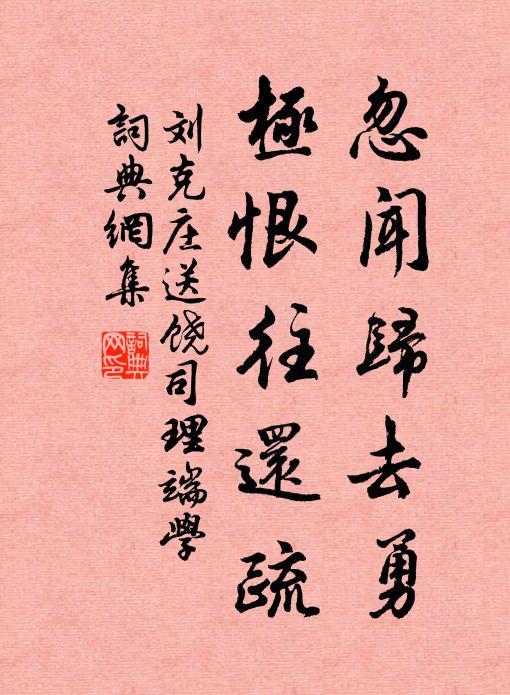 忽闻歸去勇
極恨往還疏
刘克庄送饶司理端學
詞典網集
詞典网印